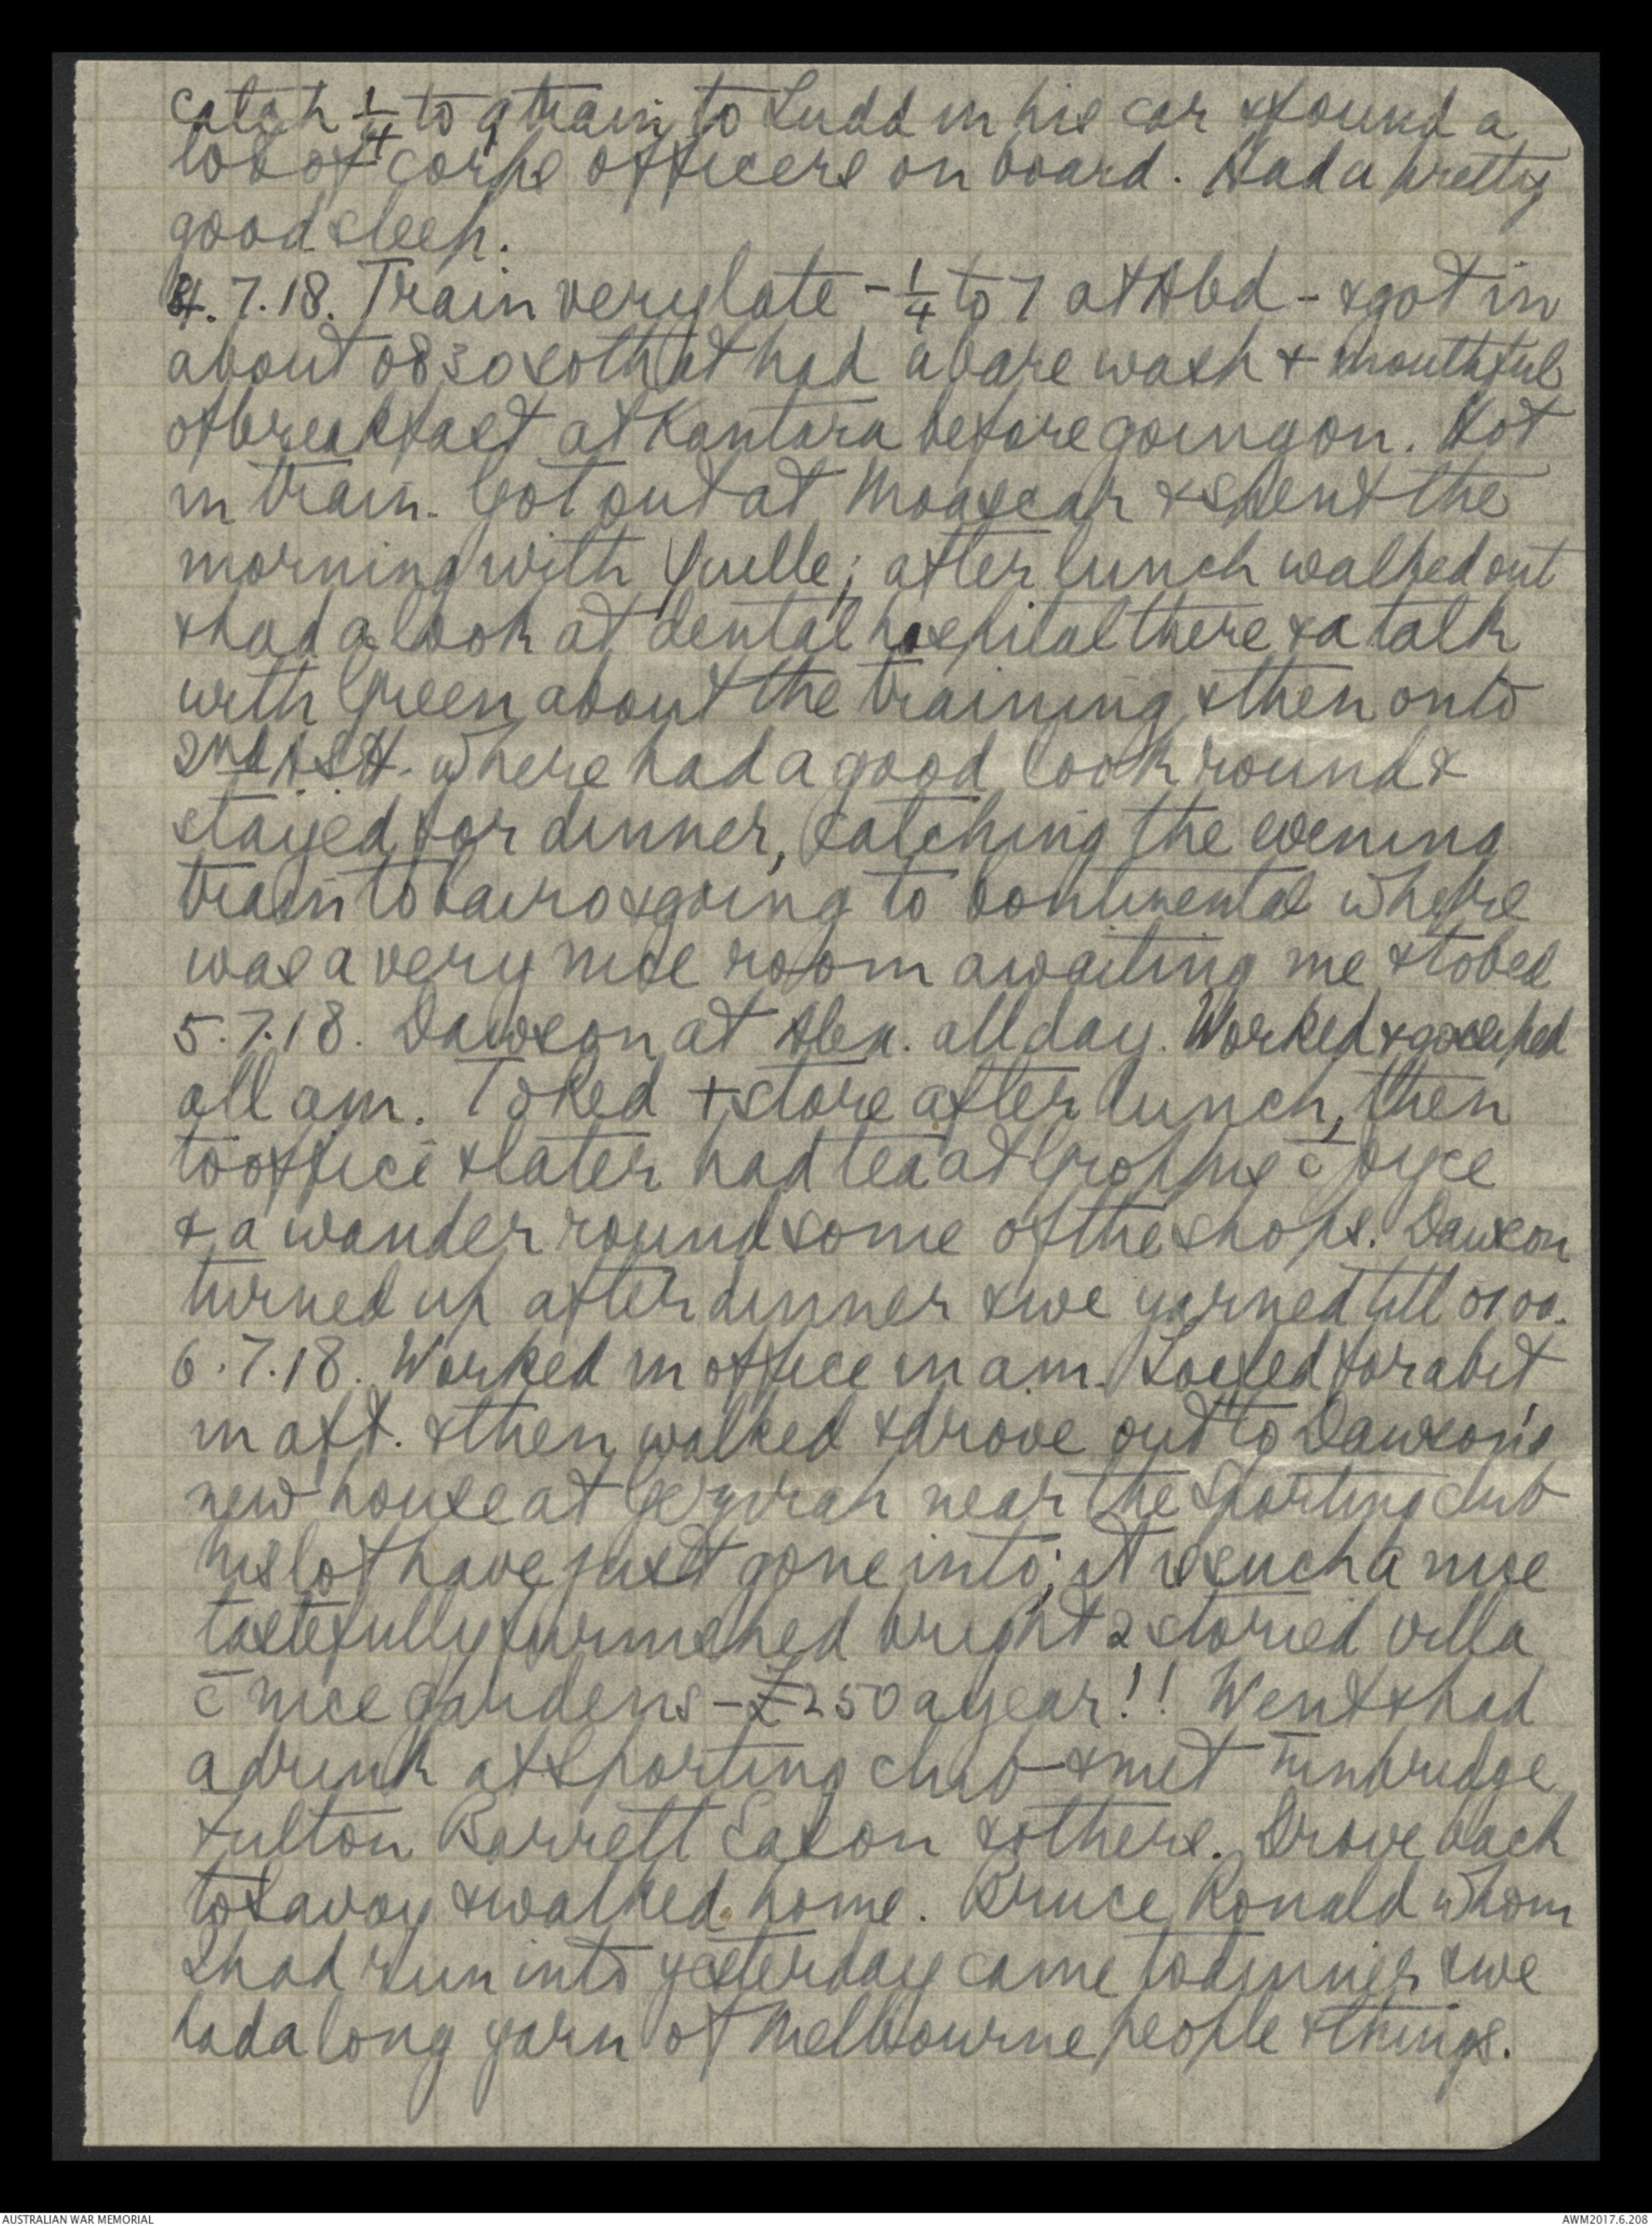 catch ¼ to 9 train to Ludd in his car & found a
lot of corps officers on board. Had a pretty
good sleep.
4.7.18. Train very late - ¼ to 7 at Abd - & got in
about 0830 so that had a bare wash & mouthful
of breakfast at Kantara before going on. Hot
in train. Got out at Moascar & spent the
morning with Yuille; after lunch walked out
& had a look at dental hospital there & a talk
with Green about the training & then on to
2nd A.S.H. where had a good look round &
stayed for dinner, catching the evening
train to Cairo & going to Continental where
was a very nice room awaiting me & to bed
5.7.18. Dawson at Alex. all day. Worked & gossiped
all am. To Red + store after lunch, then
to office & later had tea at Groppis c̄ Joyce
& a wander round some of the shops. Dawson
turned up after dinner & we yarned till 0100.
6.7.18. Worked in office in a.m. Loafed for a bit
in aft. & then walked & drove out to Dawson's
new house at Gezirah near the Sporting club
his lot have just gone into; it is such a nice
tastefully furnished bright 2 storied villa
c̄ nice gardens - £250 a year!! Went & had
a drink at Sporting club & met Tunbridge
Fulton Barrett Eason & others. Drove back
to Savoy & walked home. Bruce Ronald whom
I had run into yesterday came to dinner & we
had a long yarn of Melbourne people & things.
AUSTRALIAN WAR MEMORIAL
AWM2017.6.208